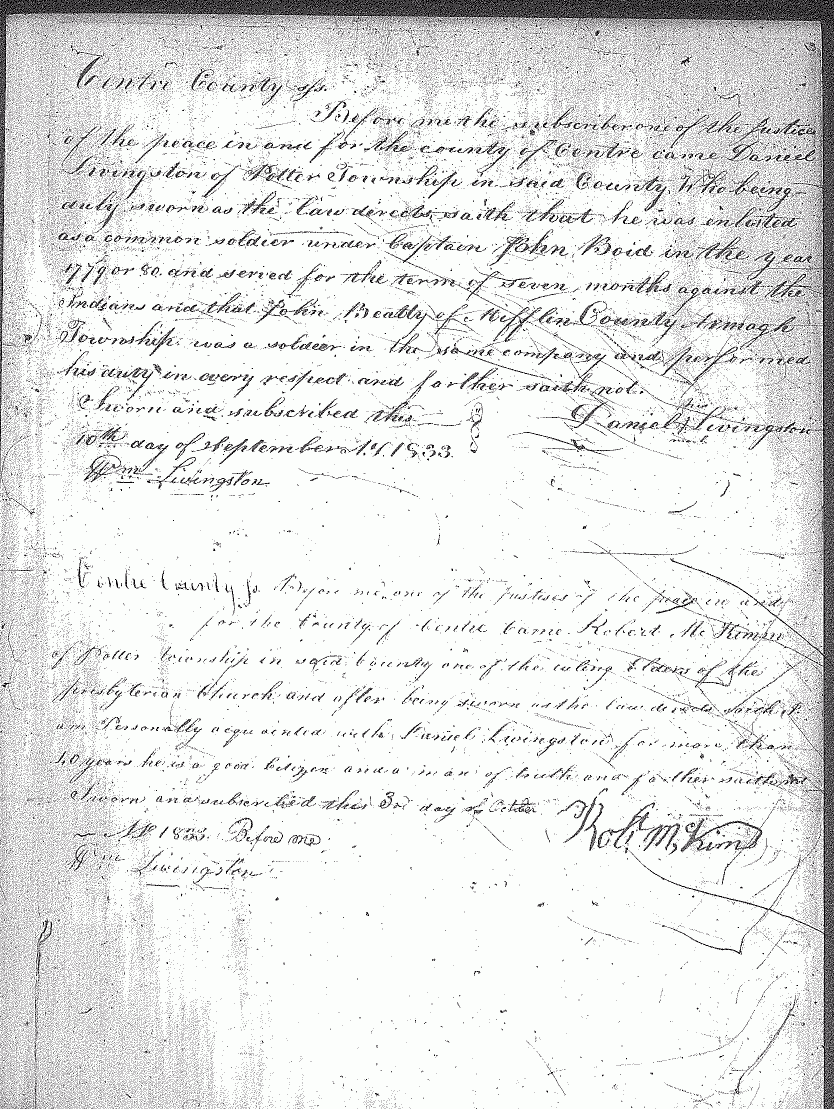 Centre County ss.
Before me the subscriber one of the Justices
of the peace in and for the county of Centre came Daniel
Livingston of Potter Township in said County, Who being
duly sworn as the law directs, saith that he was enlisted
as a common soldier under Captain John Boid in the year
1779 or 80 and served for the term of seven months against the
Indians and that John Beatty of Mifflin County Armagh
Township was a soldier in the same company and performed
his duty in every respect and farther saith not.
Sworn and subscribed this
his
Daniel Livingston
mark
10th day of September A.D. 1833
Wm Livingston
Centre County ss Before me one of the Justises of the peace in and
for the County of Centre Came Robert McKimm
of Potter township in said County one of the ruling Elders of the
presbyterian Church and after being sworn as the law directs saith I
am Personally acquainted with Daniel Livingston for more than
40 years he is a good Citizen and a man of truth and farther saith not
Sworn and subscribed this 3rd day of October
Robt McKim
AD 1833 Before me
Wm Livingston